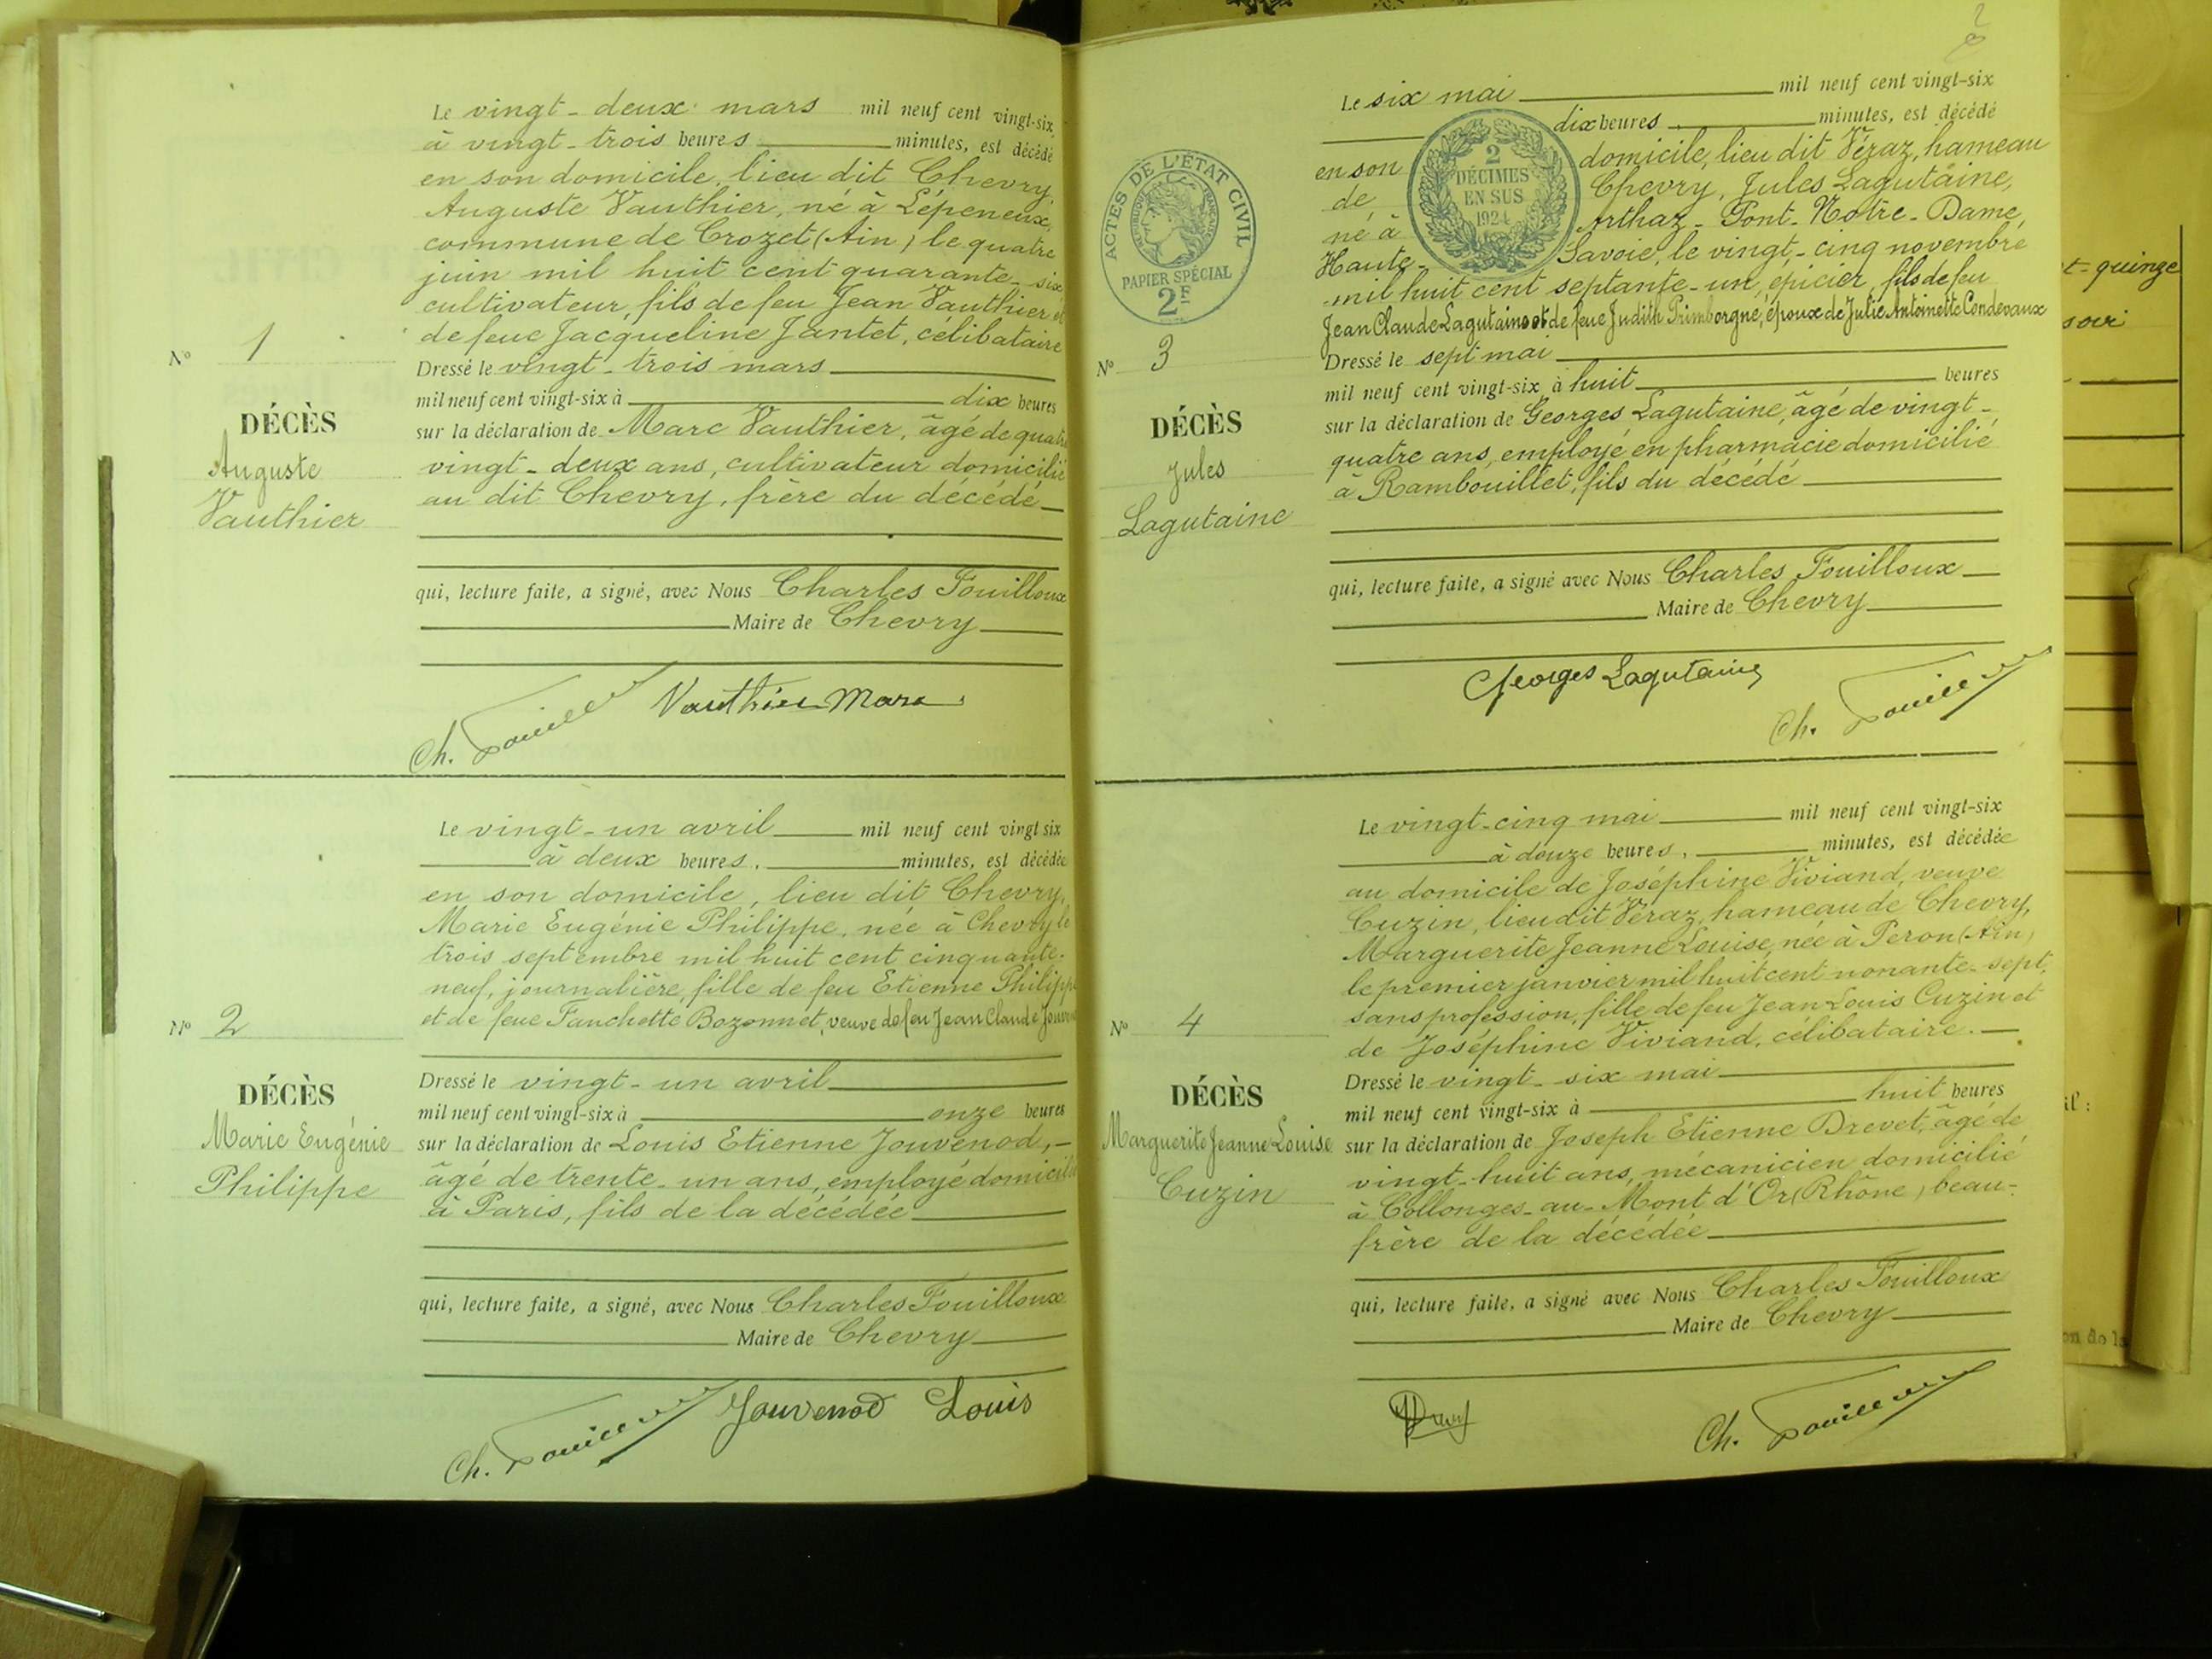 Le vingt-deux mars mil neuf cent vingt-six
à vingt-trois heures minutes, est décédé
en son domicile, lieu dit Chevry,
Auguste Vauthier, né à Lépeneux,
commune de Crozet (Ain) le quatre
juin mil huit cent quarante-six
cultivateur, fils de feu Jean Vauthier et
de feue Jacqueline Jantet, célibataire
Nº 1
Dressé le vingt-trois mars
mil neuf cent vingt-six à dix heures
DÉCÈS
Auguste
Vauthier
sur la déclaration de Marc Vauthier, âgé de quatre
vingt-deux ans, cultivateur domicilié
au dit Chevry, frère du décédé
qui, lecture faite, a signé, avec Nous Charles Fouilloux
Maire de Chevry
Ch. Fouilloux Vauthier Marc
Le vingt-un avril mil neuf cent vingt six
à deux heures, minutes, est décédée
en son domicile, lieu dit Chevry,
Marie Eugénie Philippe, née à Chevry le
trois septembre mil huit cent cinquante-
neuf, journalière, fille de feu Etienne Philippe
et de feue Fanchette Bozonnet, veuve de feu Jean Claude
Nº 2
Dressé le vingt-un avril
mil neuf cent vingt-six à onze heures
DÉCÈS
Marie Eugénie
Philippe
sur la déclaration de Louis Etienne Jouvenod,
âgé de trente-un ans, employé domicilié
à Paris, fils de la décédée
qui, lecture faite, a signé, avec Nous Charles Fouilloux
Maire de Chevry
Ch. Fouilloux Jouvenod Louis
2
Le six mai mil neuf cent vingt-six
dix heures minutes, est décédé
en son domicile, lieu dit Véraz, hameau
de Chevry, Jules Lagutaine,
né à Arthaz-Pont-Notre-Dame,
Haute-Savoie, le vingt-cinq novembre
mil huit cent septante-un, épicier, fils de feu
Jean Claude Lagutaine et de feue Judith Primborgne, époux de Julie Antoinette Condevaux
2
DÉCIMES
EN SUS
1924
ACTES DE L'ÉTAT CIVIL
RÉPUBLIQUE FRANÇAISE
PAPIER SPÉCIAL
2F
Nº 3
Dressé le sept mai
mil neuf cent vingt-six à huit heures
DÉCÈS
Jules
Lagutaine
sur la déclaration de Georges Lagutaine, âgé de vingt-
quatre ans, employé en pharmacie domicilié
à Rambouillet, fils du décédé
qui, lecture faite, a signé avec Nous Charles Fouilloux
Maire de Chevry
Georges Lagutaine Ch. Fouilloux
Le vingt-cinq mai mil neuf cent vingt-six
à douze heures, minutes, est décédée
au domicile de Joséphine Viviand, veuve
Cuzin, lieu dit Véraz, hameau de Chevry,
Marguerite Jeanne Louise, née à Peron (Ain)
le premier janvier mil huit cent nonante-sept,
sans profession, fille de feu Jean Louis Cuzin et
de Joséphine Viviand, célibataire.
Nº 4
Dressé le vingt-six mai
mil neuf cent vingt-six à huit heures
DÉCÈS
Marguerite Jeanne Louise
Cuzin
sur la déclaration de Joseph Etienne Drevet, âgé de
vingt-huit ans, mécanicien domicilié
à Collonges-au-Mont d'Or (Rhône), beau-
frère de la décédée
qui, lecture faite, a signé avec Nous Charles Fouilloux
Maire de Chevry
Ch. Fouilloux
t-quinze